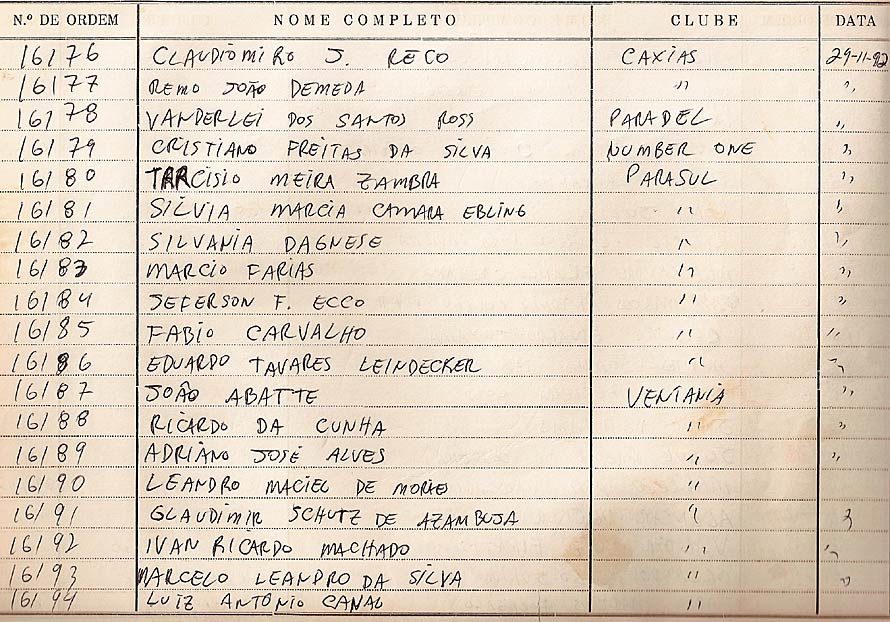 N.º DE ORDEM NOME COMPLETO CLUBE DATA
16176 CLAUDIOMIRO J. RECO CAXIAS 29-11-92
16177 REMO JOÃO DEMEDA " "
16178 VANDERLEI DOS SANTOS ROSS PARADEL "
16179 CRISTIANO FREITAS DA SILVA NUMBER ONE "
16180 TARCISIO MEIRA ZAMBRA PARASUL "
16181 SILVIA MARCIA CAMARA EBLING " "
16182 SILVANIA DAGNESE " "
16183 MARCIO FARIAS " "
16184 JEFERSON F. ECCO " "
16185 FABIO CARVALHO " "
16186 EDUARDO TAVARES LEINDECKER " "
16187 JOÃO ABATTE VENTANIA "
16188 RICARDO DA CUNHA " "
16189 ADRIANO JOSÉ ALVES " "
16190 LEANDRO MACIEL DE "
16191 GLAUDIMIR SCHUTZ DE AZAMBUJA " "
16192 IVAN RICARDO MACHADO " "
16193 MARCELO LEANDRO DA SILVA " "
16194 LUIZ ANTÔNIO CANAL "